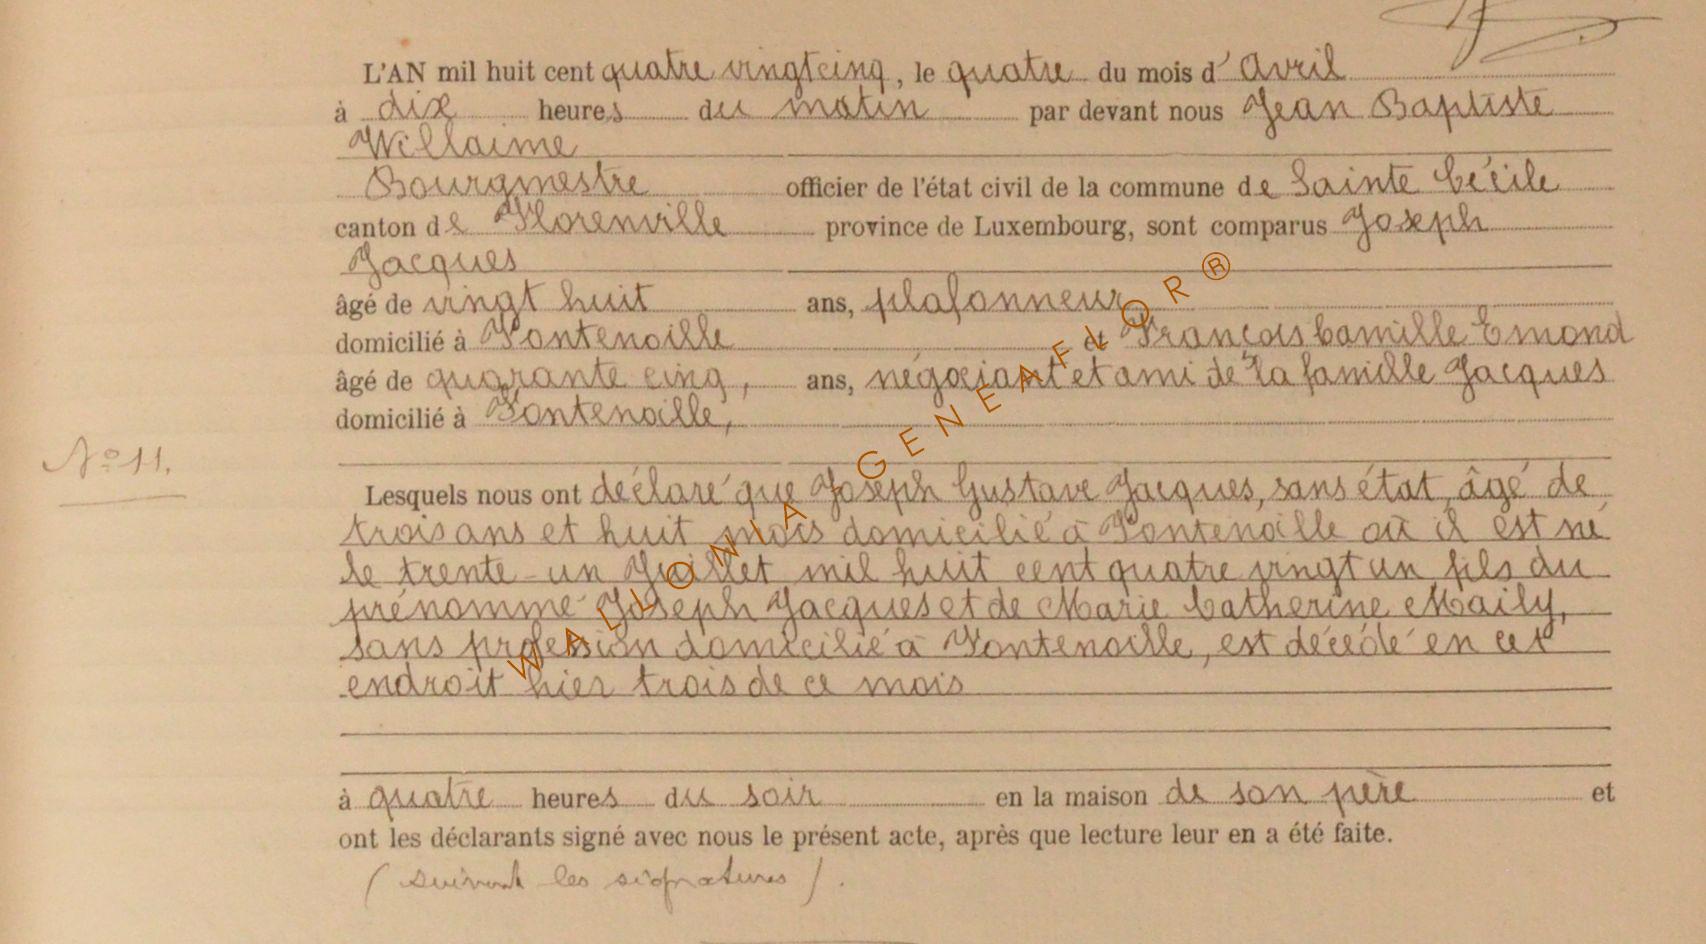 L'AN mil huit cent quatre vingt cinq, le quatre du mois d'Avril
à dix heures du matin par devant nous Jean Baptiste
Willaime
Bourgmestre officier de l'état civil de la commune de Sainte Cécile
canton de Florenville province de Luxembourg, sont comparus Joseph
Jacques
âgé de vingt huit ans, plafonneur
domicilié à Fontenoille et François Camille Emond
âgé de quarante cinq, ans, négociant et ami de la famille Jacques
domicilié à Fontenoille,
Nº 11.
Lesquels nous ont déclaré que Joseph Gustave Jacques, sans état, âgé de
trois ans et huit mois domicilié à Fontenoille où il est né
le trente-un Juillet mil huit cent quatre vingt un fils du
prénommé Joseph Jacques et de Marie Catherine Maily,
sans profession domicilié à Fontenoille, est décédé en cet
endroit hier trois de ce mois
à quatre heures du soir en la maison de son père et
ont les déclarants signé avec nous le présent acte, après que lecture leur en a été faite.
(suivent les signatures).
WALLONIA GENEAFLOR®